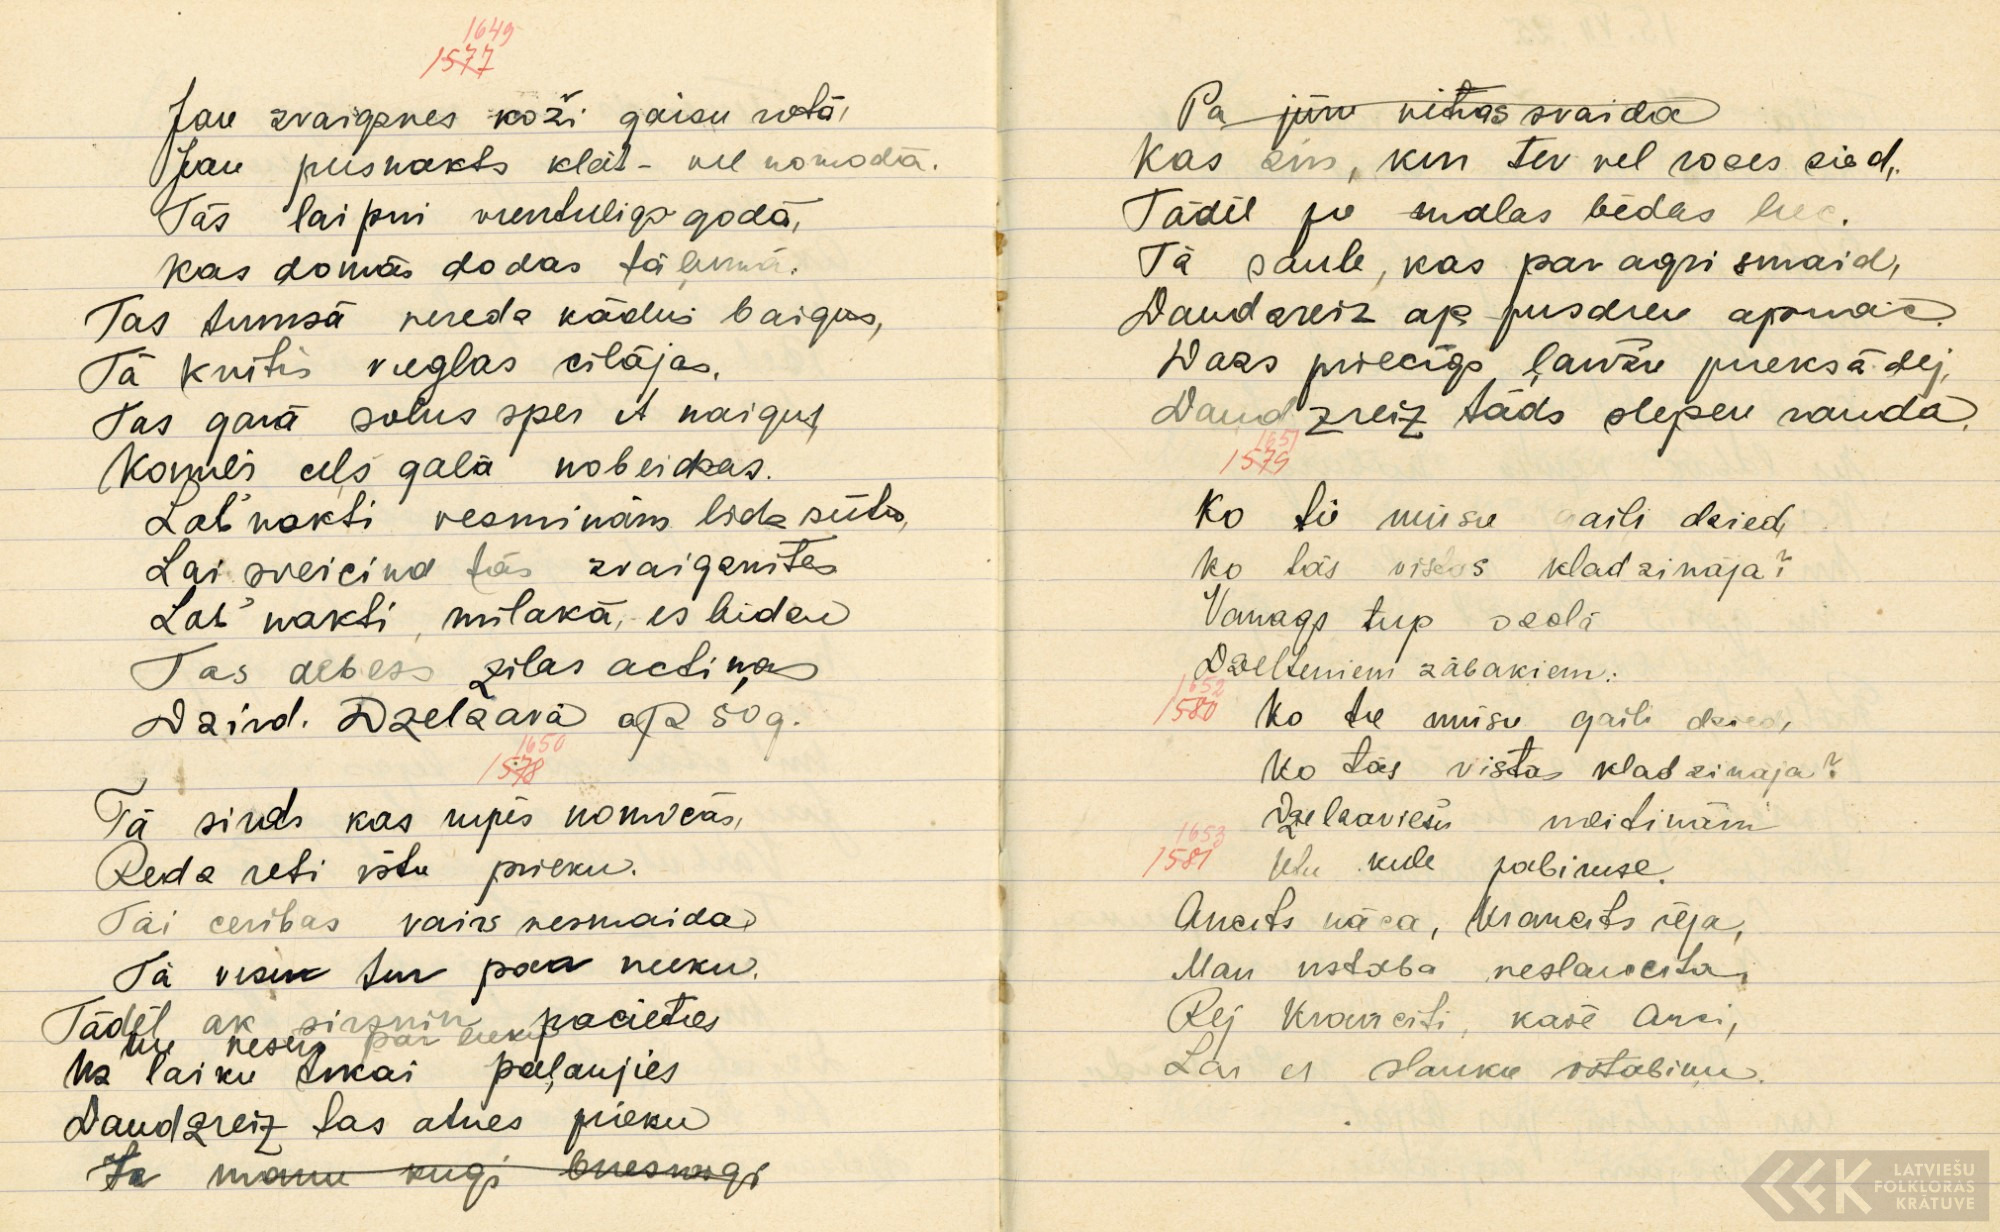 1649
1577
Jau zvaigznes koži gaisu rotā,
Jau pusnakts klāt - vel nomodā.
Tās laipni vientuligo godā,
Kas domās dodas tāļumā.
Tas tumsā nereda kādus baigus,
Tā krūtis vieglas cilājas.
Tas garā solus sper it naigus
Kamēr ceļš galā nobeidzas.
Lab' nakti vesminām līdz sūtu,
Lai sveicina tās zvaigznītes
Lab' nakti, mīļakā, es lūdzu
Tas debess zilas actiņas
Dzird. Dzelzavā ap 50 g.
1650
1578
Tā sirds kas rūpēs nomocās,
Redz reti īstu prieku.
Tai cerības vairs nesmaida
Tā visu tur par nieku.
Tādēļ ak sirsniņ pacieties
tu nesūr par lieku
Uz laiku tikai paļaujies
Daudzreiz tas atnes prieku
Ja manu kugi
Pa jūru vētras svaida
Kas zin, kur tev vel rozes zied,
Tādēļ pa malas bēdas liec.
Tā saule, kas par agri smaid,
Daudzreiz ap pusdien apmāc.
Dazs priecīgs ļaužu priekšā dej,
Daudzreiz tāds slepen raudā.
1651
1579
Ko tie mūsu gaiļi dzied,
Ko tās vistas kladzināja?
Vanags tup ozolā
Dzelteniem zābakiem.
1652
1580
Ko tie mūsu gaiļi dzied,
Ko tās vistas kladzināja?
Dzelzaviešu meitinām
Utu kule pabiruse.
1653
1581
Ancits nāca, Krancits rēja,
Man ustaba neslaucita,
Rej Kranciti, kavē Anci,
Lai es slauku istabinu.
LATVIEŠU
FOLKLORAS
KRĀTUVE